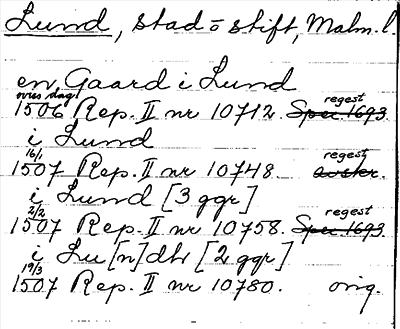 Lund, stad o stift, Malm. l.
en Gaard i Lund
1506 Rep. II nr 10712. Spec 1693 regest
i Lund
16/1
1507 Rep. II nr 10748. regest
i Lund [3 ggr]
2/2
1507 Rep. II nr 10758. Spec 1693 regest
i Lu[n]dh [2 ggr]
19/3
1507 Rep. II nr 10780. orig.